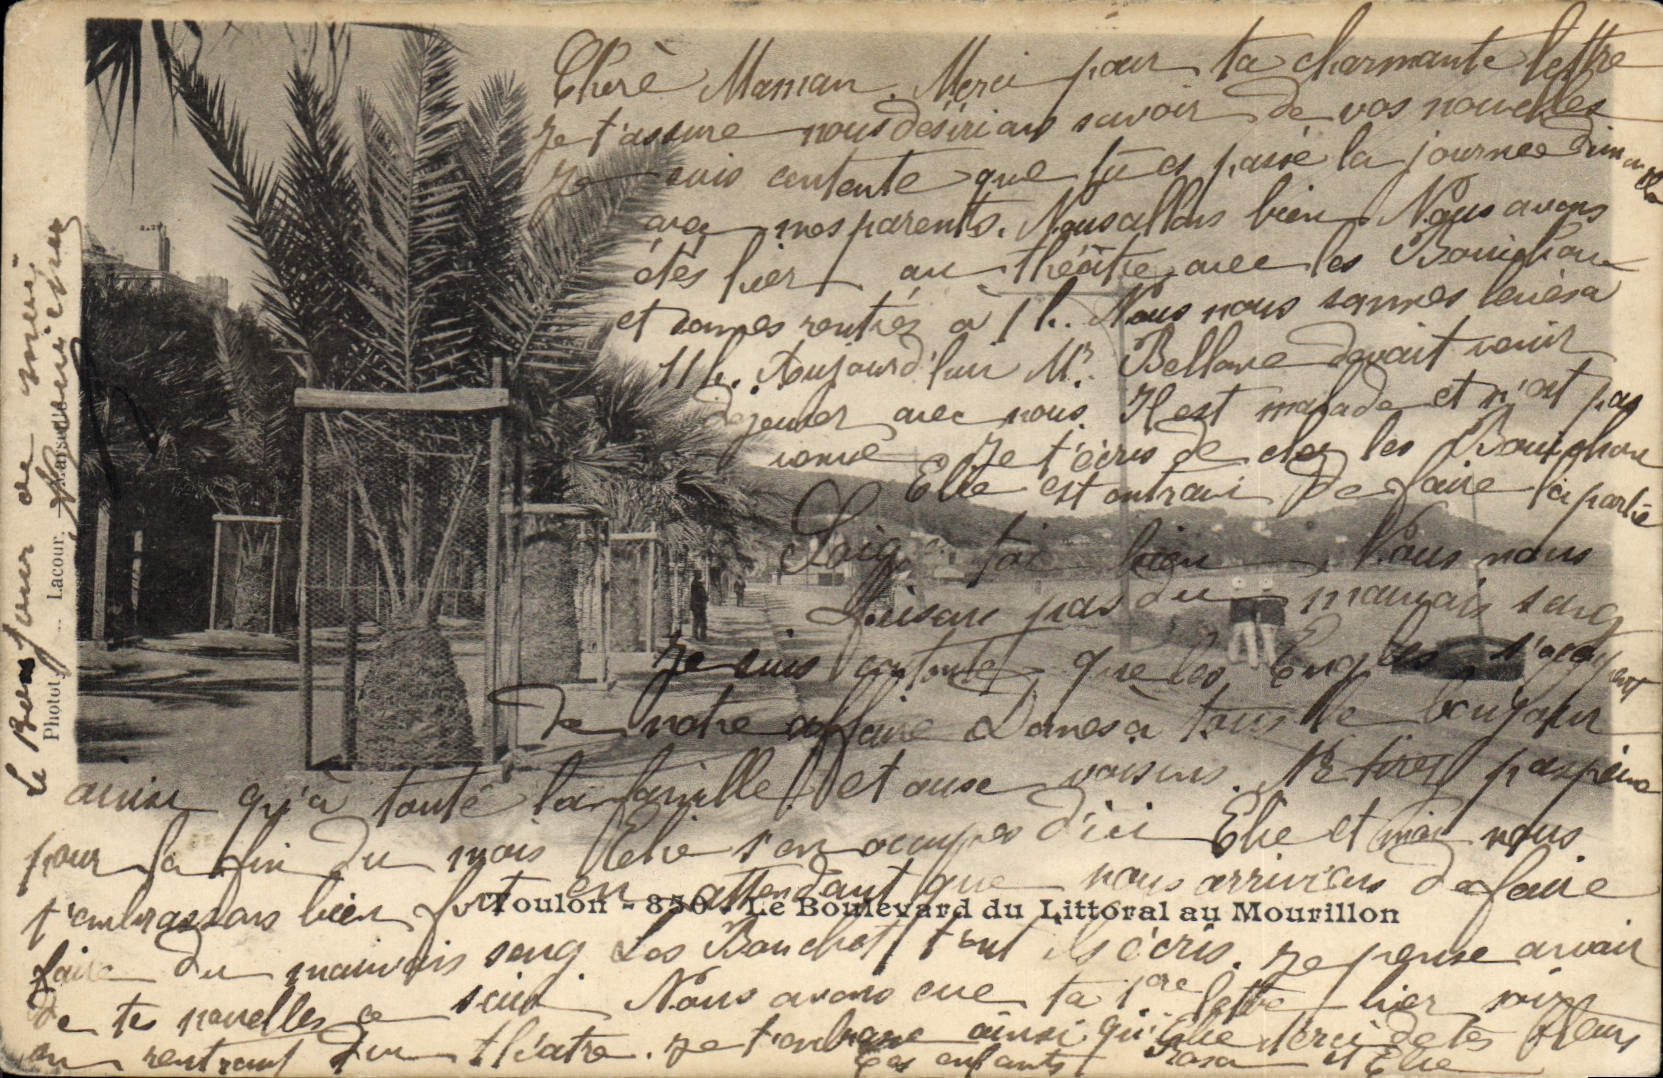 Chère Maman. Merci pour ta charmante lettre
Je t'assure nous désirions savoir de vos nouvelles
Je suis contente que tu es passé la journee dimanche
avec mes parents. Nous allons bien. Nous avons
étés hier au théâtre avec les
et sommes rentrés à 1 h. Nous nous sommes levés à
11 h. Aujourd'hui Mr. devait venir
dejeuner avec nous. Il est malade et n'est pas
venu Je t'écris de chez les
Elie est entrain de faire la partie
Soigne toi bien. Nous nous
faisons pas du mauvais sang
Je suis contente que les s'occupent
de notre affaire Donnes à tous le bonjour
ainsi qu'à toute la famille et aux voisins. Ne
pour la fin du mois Elie s'en occupes d'ici Elie et moi nous
t'embrassons bien fort en attendant que nous arrivions de faire
faire du mauvais sang Les t'ont ils écris. Je pense avoir
de tes nouvelles ce soir. Nous avons eue ta 1ere lettre hier soir
en rentrant du théatre. Je t'embrasse ainsi qu'Elie de tes
tes enfants Rosa et Elie
Le Bonjour de
Toulon - 850 - Le Boulevard du Littoral au Mourillon
Photot. Lacour,